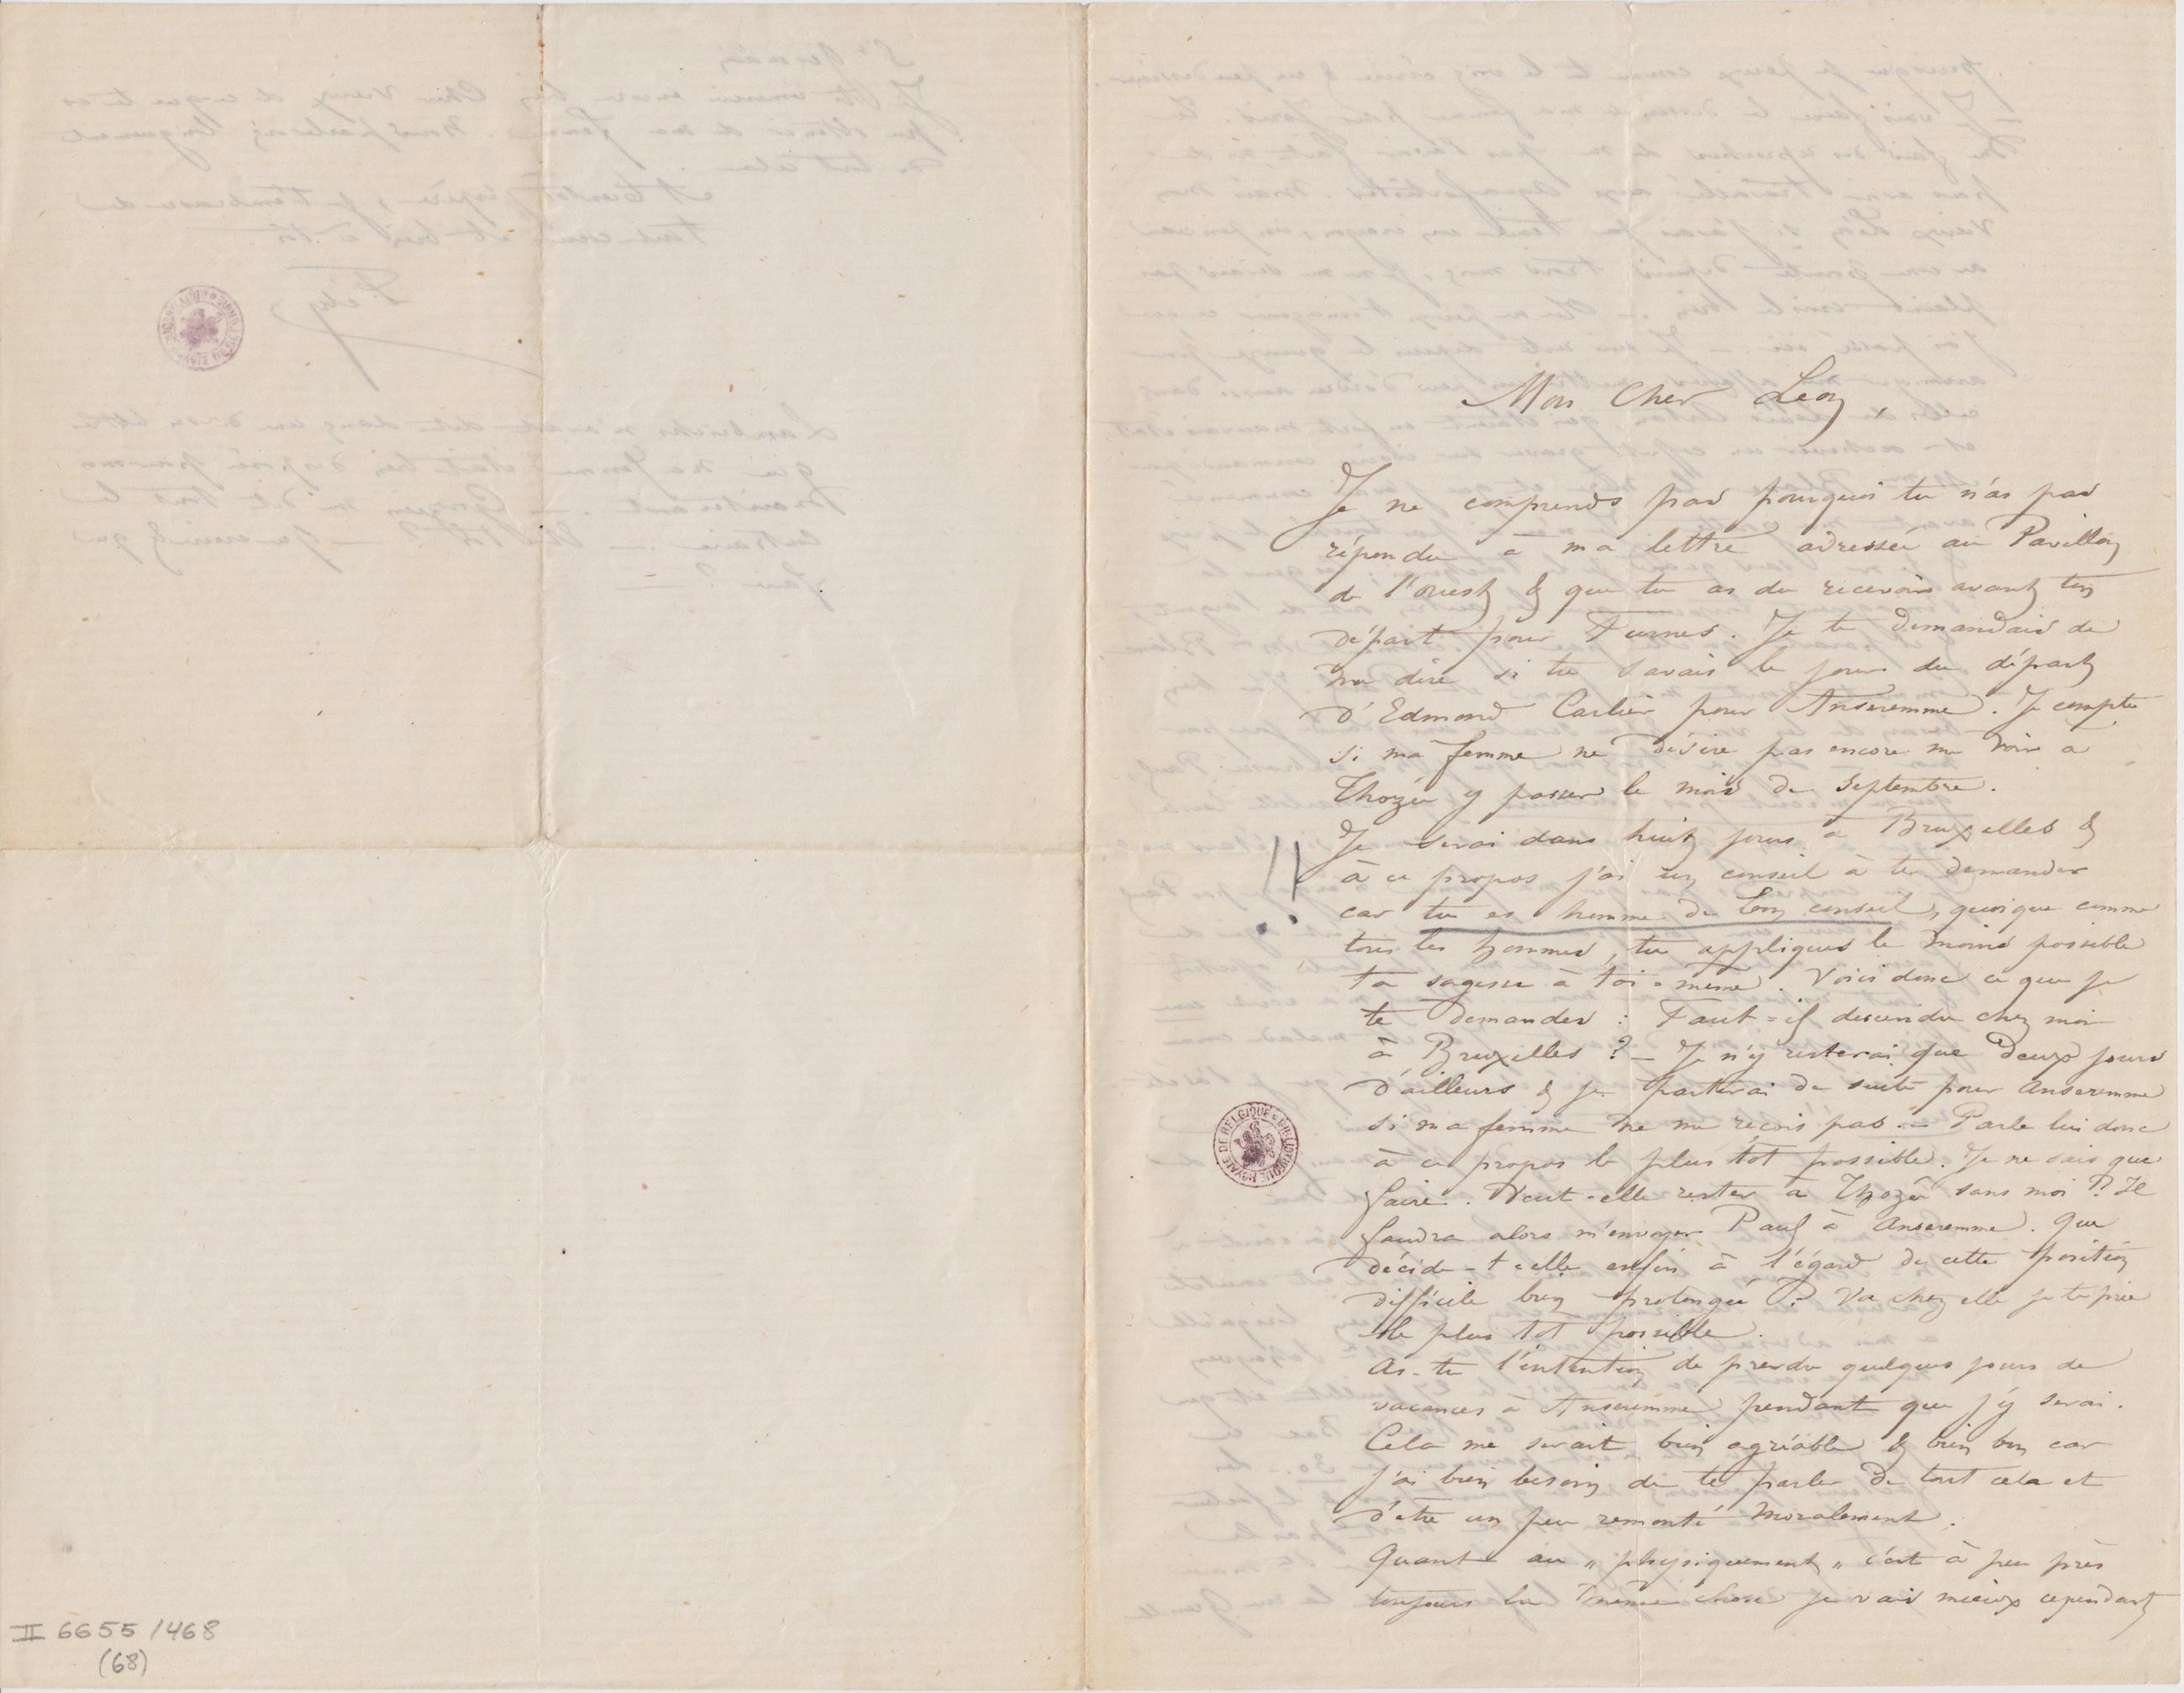 Mon Cher Léon,
Je ne comprends pas pourquoi tu n'as pas
répondu à ma lettre adressée au Pavillon
de l'ouest & que tu as du recevoir avant ton
départ pour Furnes. Je te demandais de
me dire si tu savais le jour du départ
d'Edmond Carlier pour Anseremme. Je compte
si ma femme ne désire pas encore me voir à
Thozée y passer le mois de Septembre.
Je serai dans huit jours à Bruxelles &
à ce propos j'ai un conseil à te demander
car tu es homme de bon conseil, quoique comme
tous les hommes, tu appliques le moins possible
ta sagesse à toi-même. Voici donc ce que je
te demandes : Faut-il descendre chez moi
à Bruxelles ? – Je n'y resterai que deux jours
d'ailleurs & je partirai de suite pour Anseremme
si ma femme ne me reçois pas. – Parle lui donc
à ce propos le plus tôt possible. Je ne sais que
faire. Veut-elle rester à Thozée sans moi ? Il
faudra alors m'envoyer Paul à Anseremme. Que
décide-t-elle enfin à l'égard de cette position
difficile bien prolongée ? Va chez elle je te prie
le plus tot possible.
As-tu l'intention de prendre quelques jours de
vacances à Anseremme pendant que j'y serai.
Cela me serait bien agréable & bien bon car
j'ai bien besoin de te parler de tout cela et
d'être un peu remonté moralement.
Quant au „physiquement„ c'est à peu près
toujours la même chose je vais mieux cependant
BIBLIOTHEQUE ROYALE DE BELGIQUE
II 6655/468
(68)